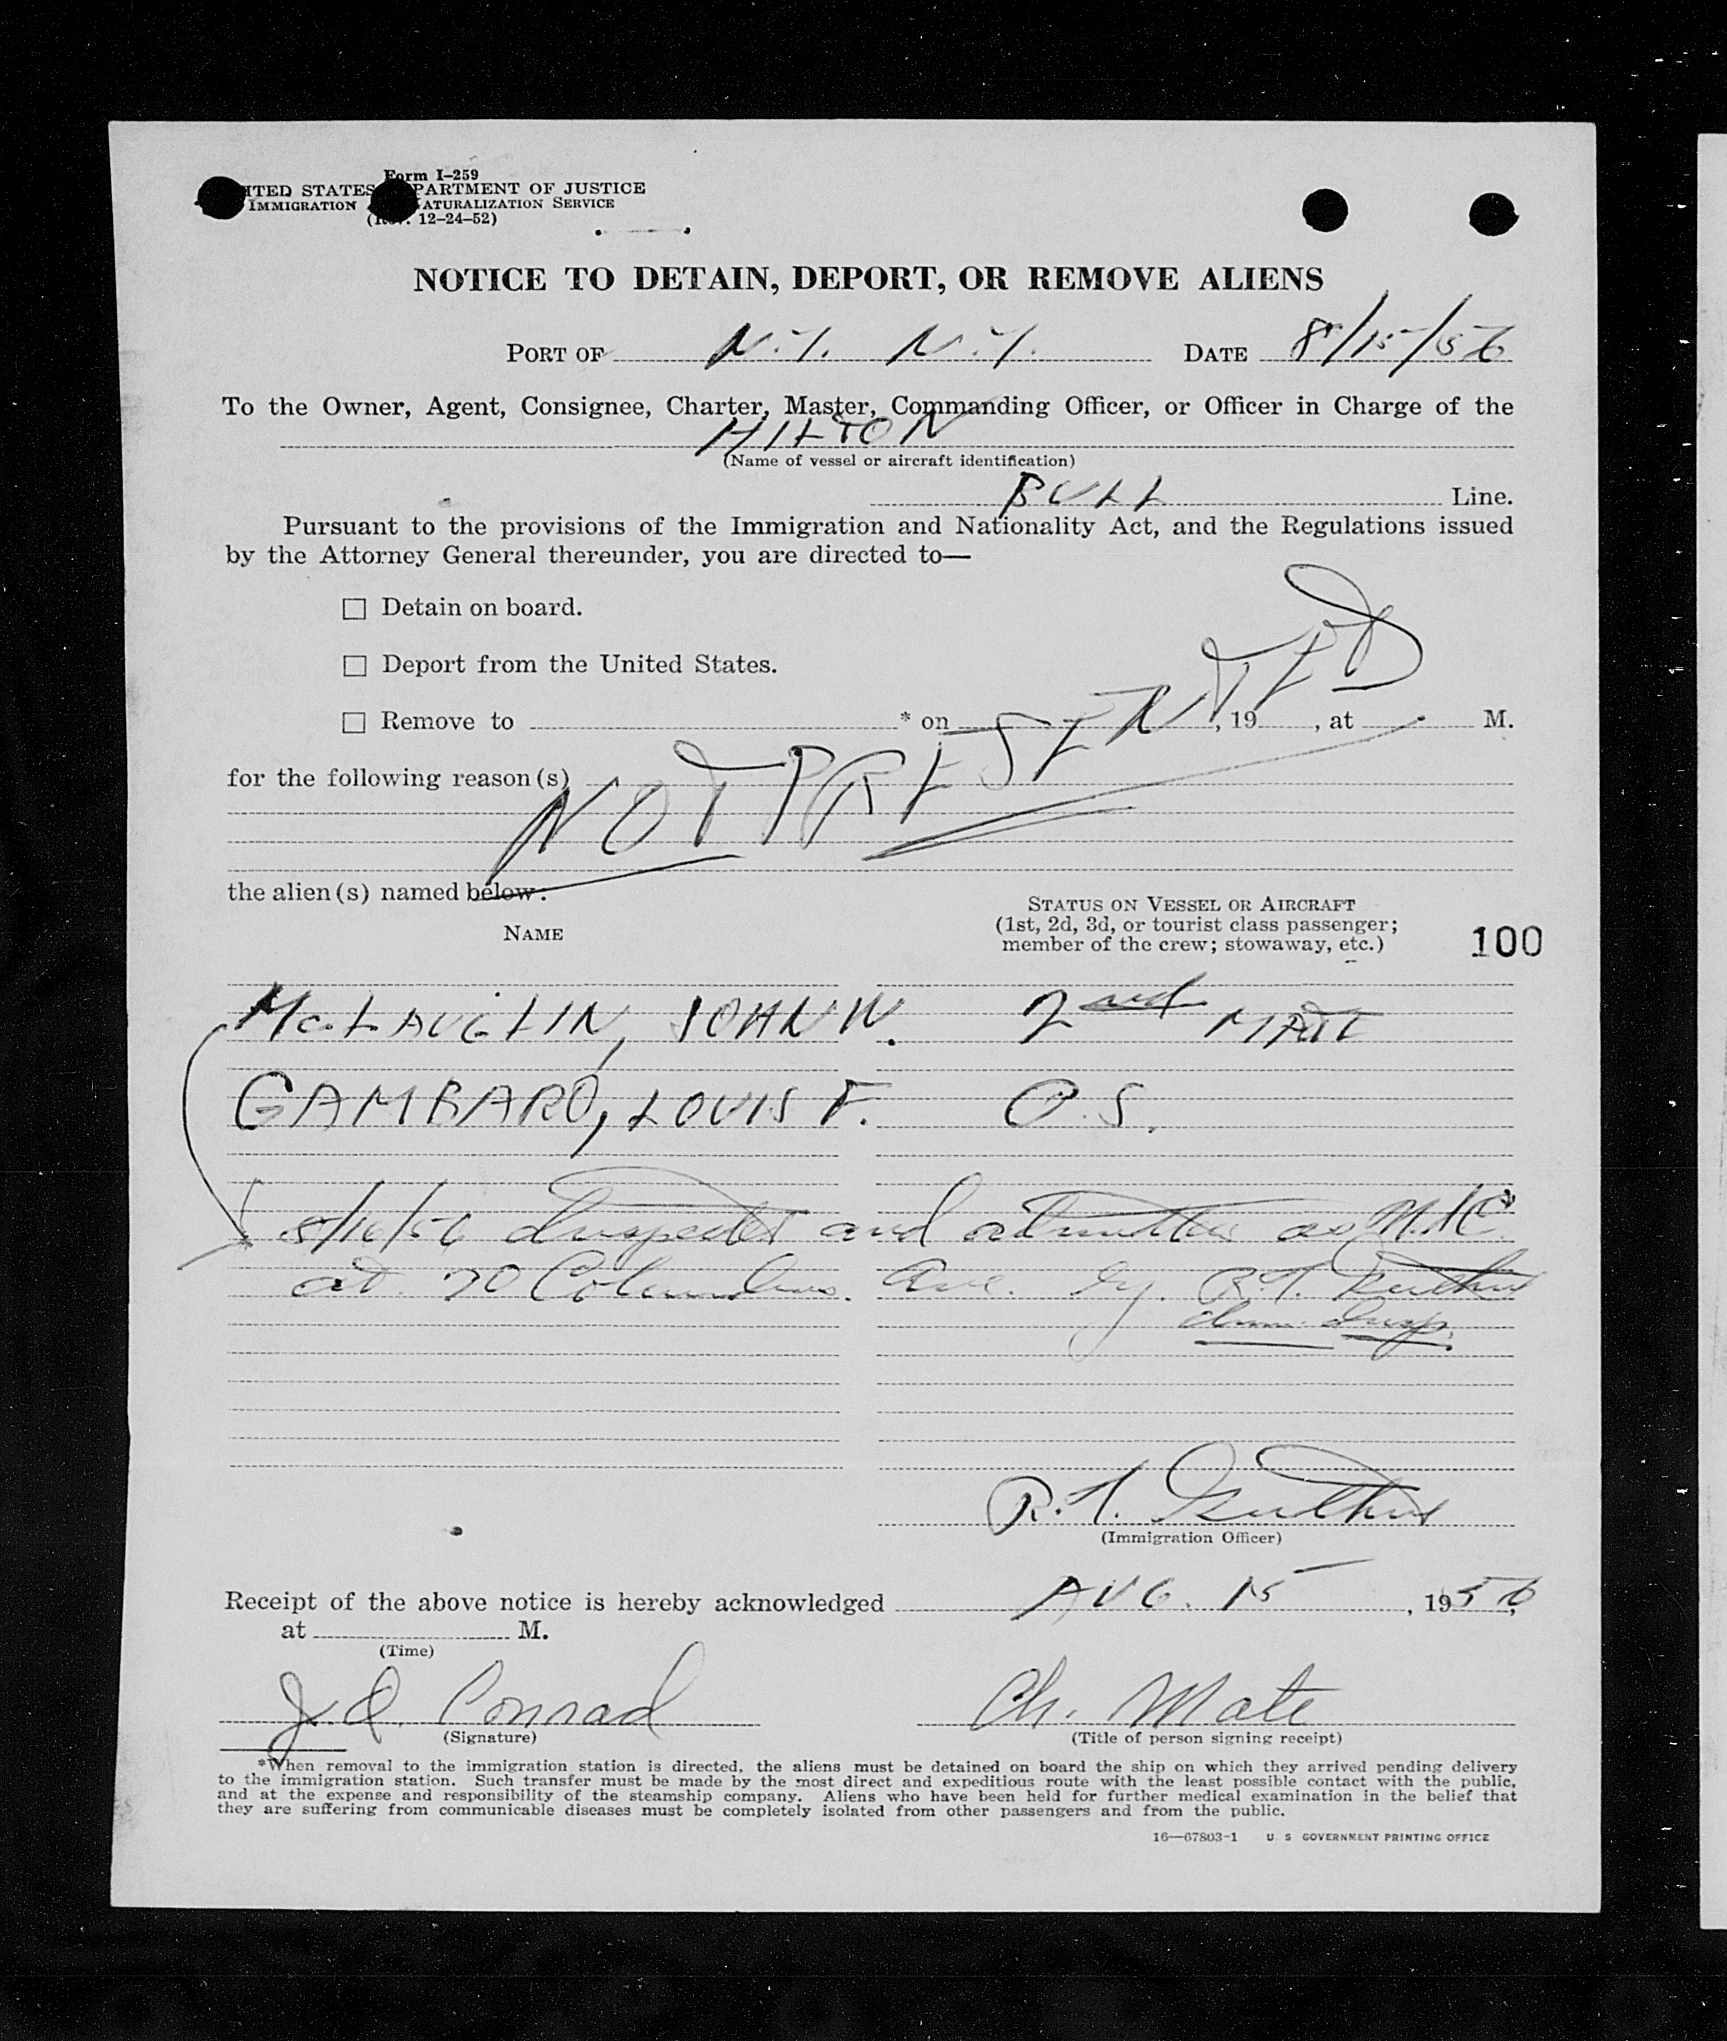 Form I-259
ITED STATES PARTMENT OF JUSTICE
IMMIGRATION ATURALIZATION SERVICE
(R v. 12-24-52)
NOTICE TO DETAIN, DEPORT, OR REMOVE ALIENS
PORT OF N.Y. N.Y. DATE 8/15/56
To the Owner, Agent, Consignee, Charter, Master, Commanding Officer, or Officer in Charge of the
HILTON
(Name of vessel or aircraft identification)
BULL Line.
Pursuant to the provisions of the Immigration and Nationality Act, and the Regulations issued
by the Attorney General thereunder, you are directed to—
☐ Detain on board.
☐ Deport from the United States.
☐ Remove to * on , 19 , at M.
for the following reason(s)
NOT PRESENTED
the alien(s) named below:
NAME
STATUS ON VESSEL OR AIRCRAFT
(1st, 2d, 3d, or tourist class passenger;
member of the crew; stowaway, etc.)
100
McLAUGLIN, JOHN W. 2nd MATE
GAMBARO, LOUIS F. O.S.
8/16/56 Inspected and admitted as
at 70 Columbus. Ave. by. R.T.
Imm. Insp.
R.T.
(Immigration Officer)
Receipt of the above notice is hereby acknowledged AUG. 15, 1956,
at M.
(Time)
J. Q. Conrad Ch. Mate
(Signature) (Title of person signing receipt)
*When removal to the immigration station is directed, the aliens must be detained on board the ship on which they arrived pending delivery
to the immigration station. Such transfer must be made by the most direct and expeditious route with the least possible contact with the public,
and at the expense and responsibility of the steamship company. Aliens who have been held for further medical examination in the belief that
they are suffering from communicable diseases must be completely isolated from other passengers and from the public.
16—67803-1 U S GOVERNMENT PRINTING OFFICE